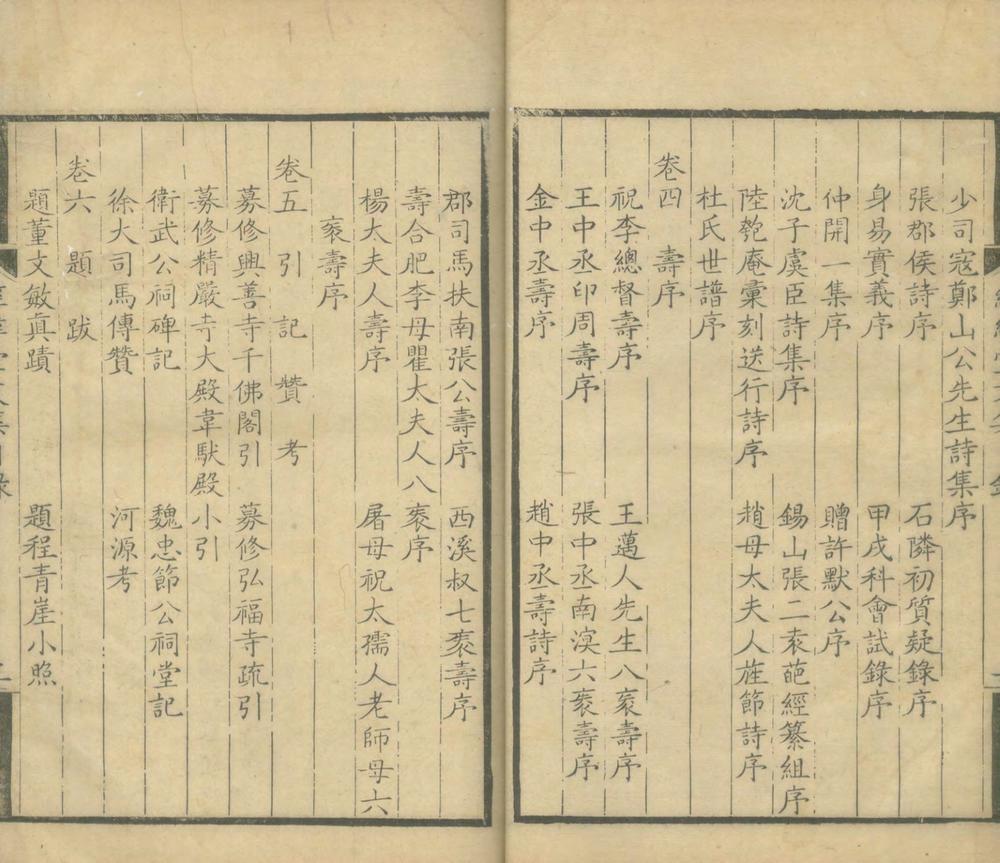 少司寇鄭山公先生詩集序
張郡侯詩序 石隣初質疑錄序
身易實義序 甲戌科會試錄序
仲開一集序 贈許默公序
沈子虞臣詩集序 錫山張二袁葩經纂組序
陸匏庵彙刻送行詩序 趙母太夫人旌節詩序
杜氏世譜序
卷四 壽序
祝李總督壽序 王邁人先生八袠壽序
王中丞印周壽序 張中丞南溟六袠壽序
金中丞壽序 趙中丞壽詩序
郡司馬扶南張公壽序 西溪叔七袠壽序
壽合肥李母瞿太夫人八袠序
楊大夫人壽序 屠母祝太孺人老師母六
袠壽序
卷五 引 記 贊 考
募修興善寺千佛閣引 募修弘福寺疏引
募修精嚴寺大殿韋馱殿小引
衛武公祠碑記 魏忠節公祠堂記
徐大司馬傳贊 河源考
卷六 題 跋
題董文敏眞蹟 題程青崖小照